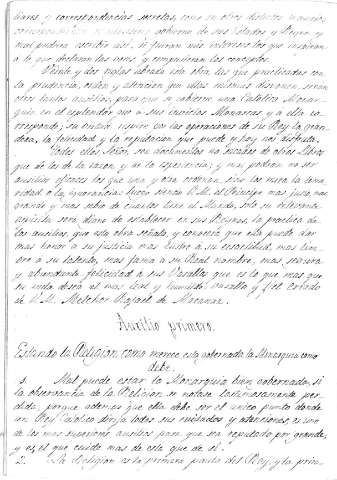 y correspondencias secretas, como en otros distintos
gobierno de sus Estados y Reyno y
mal pudiera escribir assi, si fueran mis interiores los que inspiran
a lo que declaran las voces, y compusieran los conceptos.
Veinte y dos reglas labrado esta obra, las que practicadas con
la prudencia, orden y atencion que ellas mismas disponen, seran
otros tantos ausilios, para que se gobierne una Catolica Monar
quia en el esplendor que a sus invictos Monarcas y a ella co
rresponde; su credito resuene por las operaciones de su Rey la gran
deza, la felicidad y la reputacion que puede y hoy no disfruta.
Todas ellas Señor, son documentos no sacados de otros Libros
que de los de la razon, y de la experiencia; y mal podran ser
ausilios eficaces los que una y otra ordenan, sino los mira la tema
ridad o la ignorancia; siendo V.M. el Principe mas justo, mas
grande y mas sabio de cuantos tiene el Mundo, solo su reverente
será digno de establecer en sus Reynos, la practica de
los ausilios, que esta obra señala, y conocerá que ella puede dar
mas honor a su justicia mas lustre a su rectitud, mas
a su talento, mas fama a su Real nombre, mas segura
y abundante felicidad a sus Vasallos que es lo que mas que
su vida desea el mas leal y humilde vasallo y fiel criado
de V.M. Melchor Rafael de Macanaz.
Auxilio primero.
Estando la Religion como merece esta gobernada la Monarquia como
debe.
1. Mal puede estar la Monarquia bien gobernada, si
la observancia de la Religion se notase lastimosamente per
dida, porque ademas que ella debe ser el unico punto donde
un Rey Catolico dirija todos sus cuidados y atenciones, es uno
de los mas necesarios ausilios para que sea reputado por grande,
y es, el que cuide mas de esta que de sí.
2. La Religion es la primera pauta del Rey, y la prin